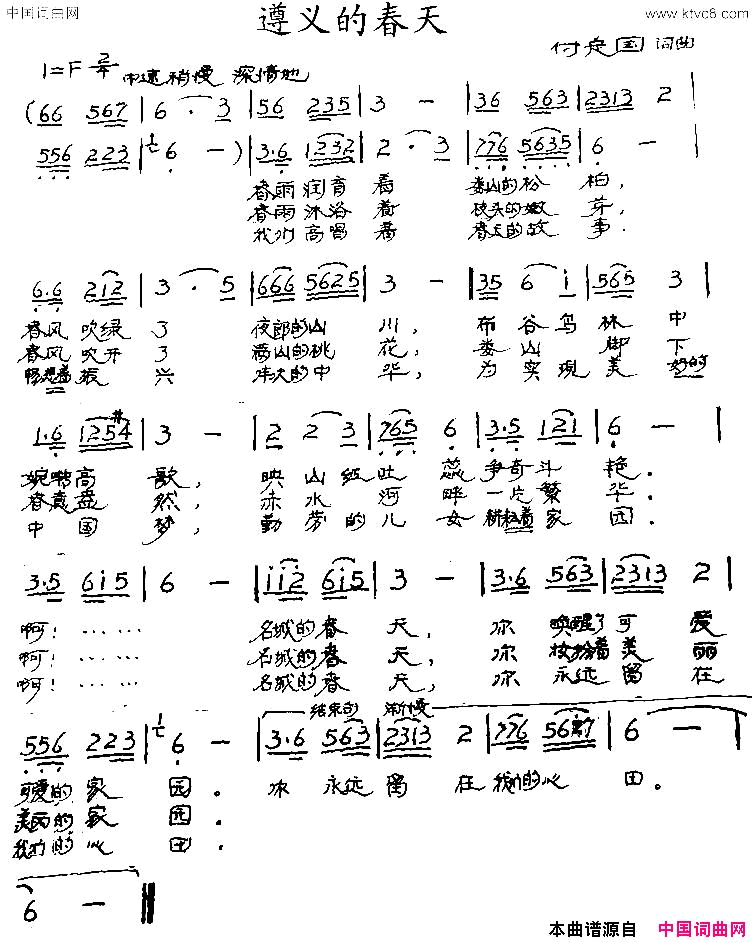 中国词曲网
遵义的春天
www.ktvc6.com
付定国 词曲
1=F 2/4 中速稍慢 深情地
(66 567 | 6 · 3 | 56 235 | 3 - | 36 563 | 2313 2 |
556 223 | 6 - ) | 3·6 1232 | 2 · 3 | 776 5635 | 6 - |
春雨润育着 娄山的松柏,
春雨沐浴着 枝头的嫩芽,
我们高唱着 春天的故事,
6·6 212 | 3 · 5 | 666 5625 | 3 - | 35 6 i | 565 3 |
春风吹绿了 夜郎的山川, 布谷鸟林中
春风吹开了 满山的桃花, 娄山脚下
畅想着振兴 伟大的中华, 为实现美好的
1·6 125#4 | 3 - | 2 2 3 | 765 6 | 3·5 121 | 6 - |
婉啭高歌, 映山红吐蕊争奇斗艳.
春意盎然, 赤水河畔一片繁华.
中国梦, 勤劳的儿女 家园.
3·5 6i5 | 6 - | ii2 6i5 | 3 - | 3·6 563 | 2313 2 |
啊! …… …… 名城的春天, 你唤醒了可爱
啊! …… …… 名城的春天, 你妆扮着美丽
啊! …… …… 名城的春天, 你永远留在
结束句 渐慢
556 223 | 6 - | 3·6 563 | 2313 2 | 776 567 | 6 - |
可爱的家园. 你永远留在我们的心田.
美丽的家园.
我们的心田.
6 - ||
本曲谱源自 中国词曲网